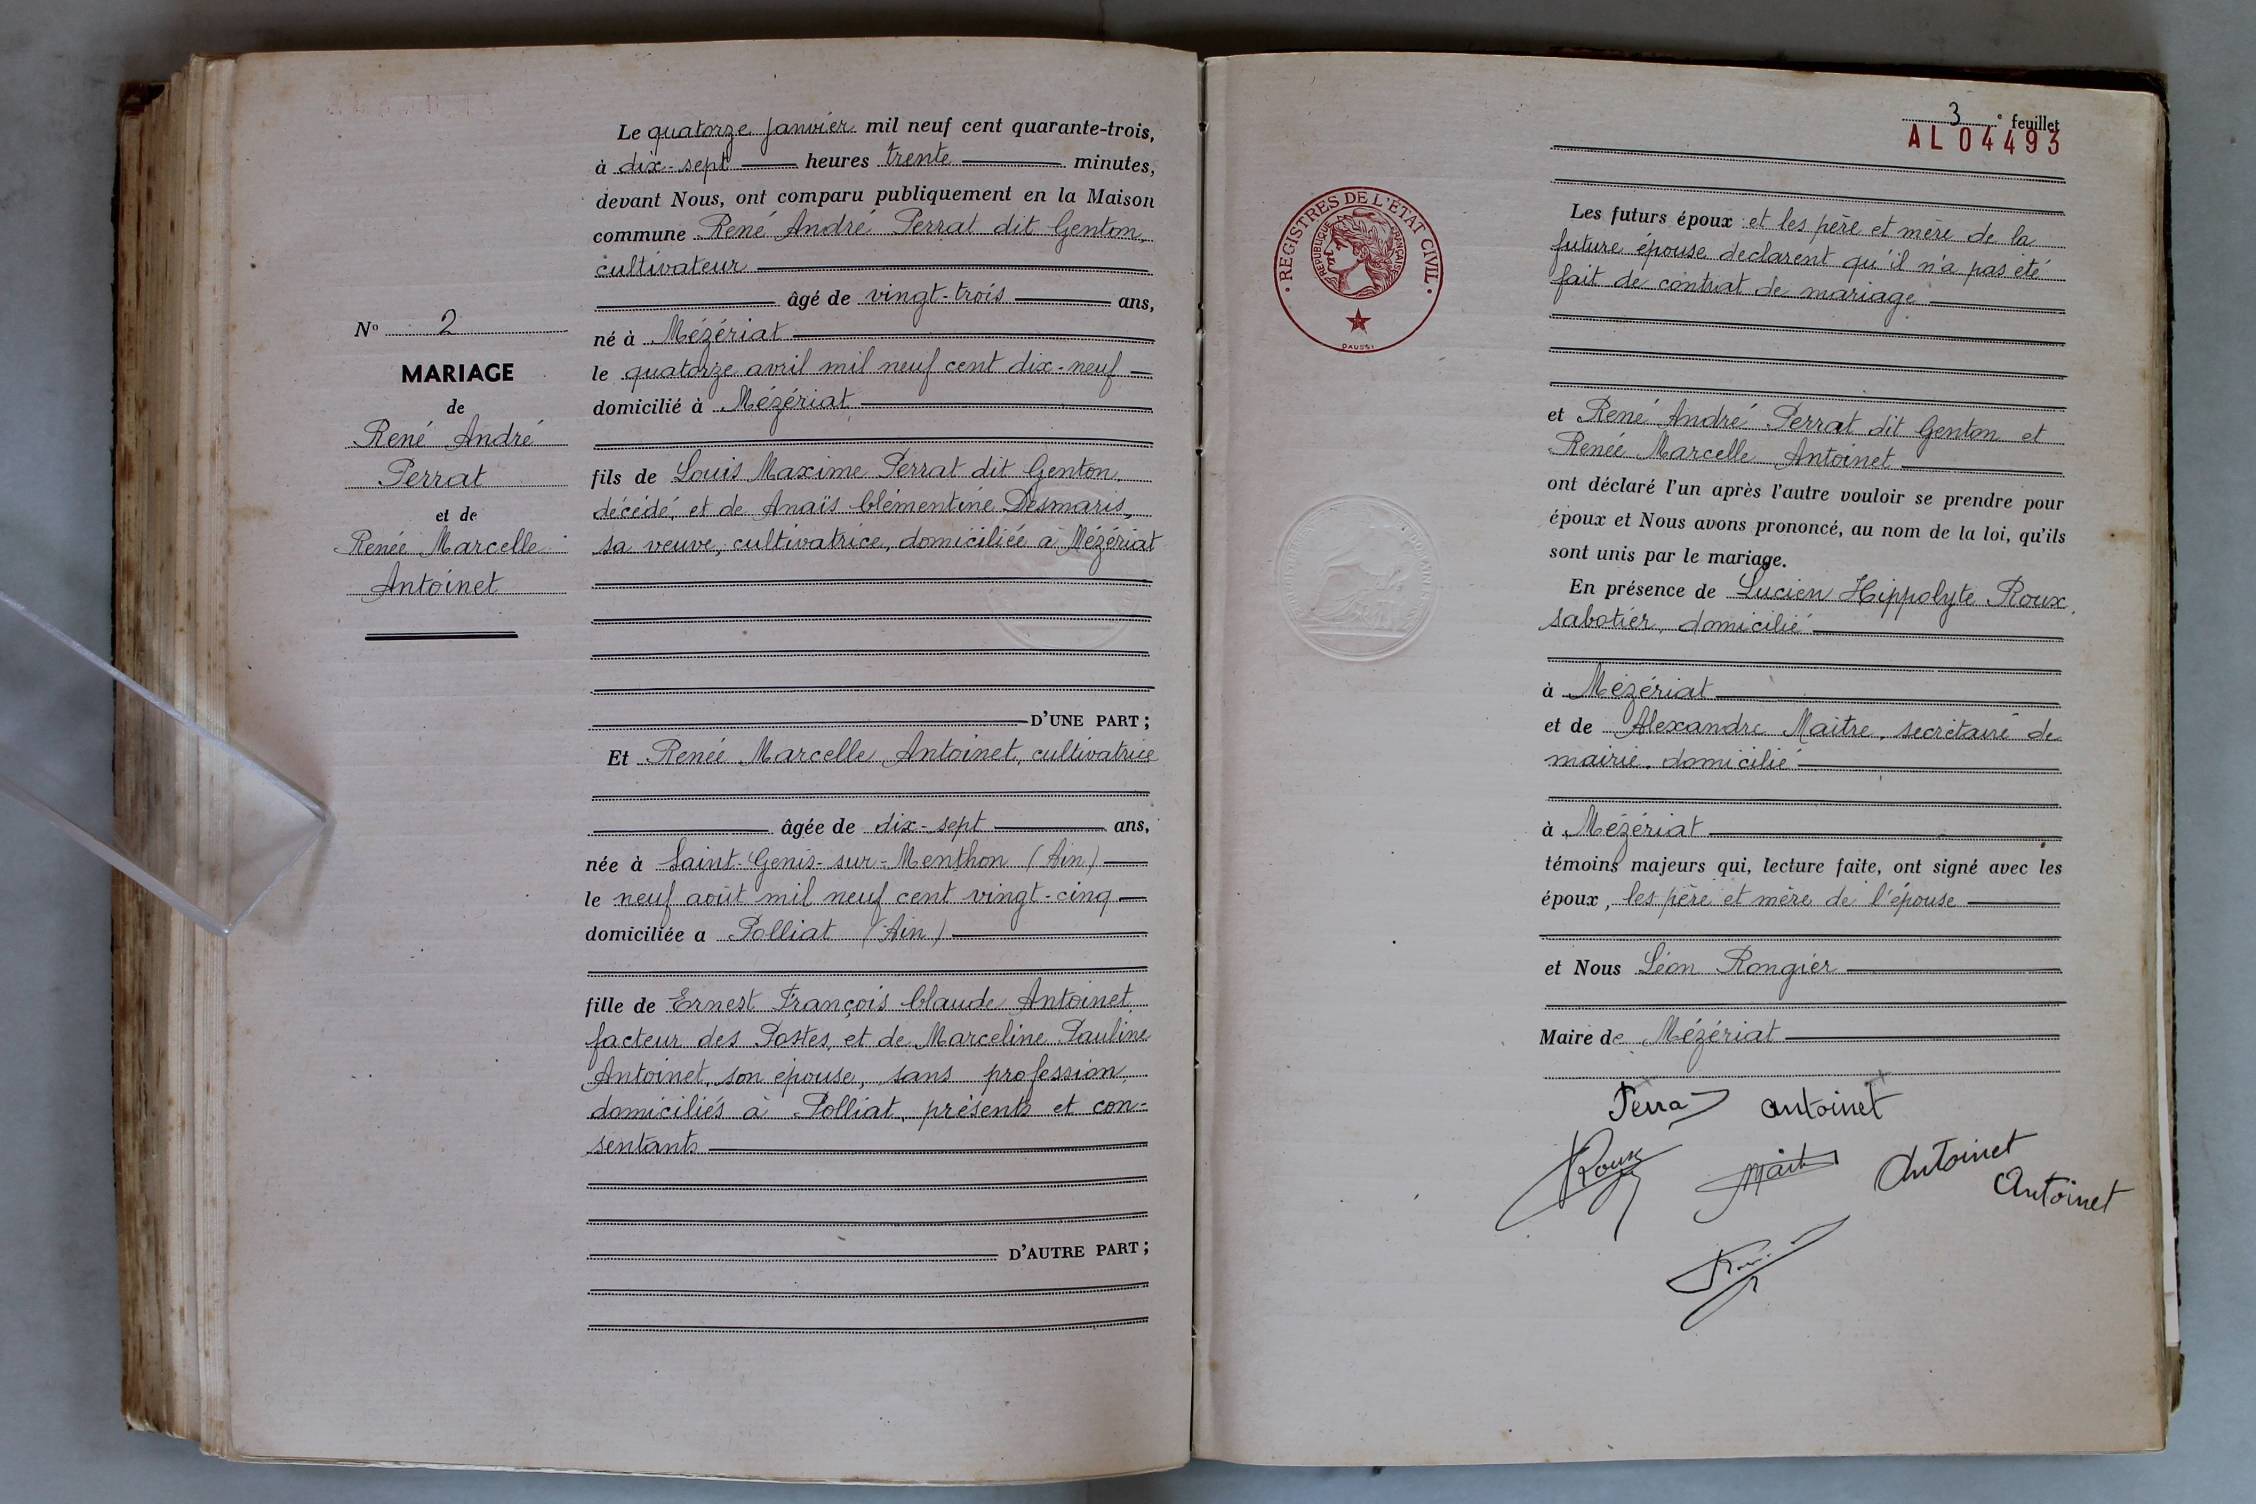 Le quatorze janvier mil neuf cent quarante-trois,
à dix-sept heures trente minutes,
devant Nous, ont comparu publiquement en la Maison
commune René André Perrat dit Genton,
cultivateur
âgé de vingt-trois ans,
né à Mézériat
le quatorze avril mil neuf cent dix-neuf
domicilié à Mézériat
fils de Louis Maxime Perrat dit Genton,
décédé, et de Anaïs Clémentine Desmaris,
sa veuve, cultivatrice, domiciliée à Mézériat
D'UNE PART ;
Et Renée Marcelle Antoinet, cultivatrice
âgée de dix-sept ans,
née à Saint-Genis-sur-Menthon (Ain)
le neuf août mil neuf cent vingt-cinq
domiciliée a Polliat (Ain)
fille de Ernest François Claude Antoinet
facteur des Postes, et de Marceline Pauline
Antoinet, son épouse, sans profession,
domiciliés à Polliat, présents et con-
sentants
D'AUTRE PART ;
N° 2
MARIAGE
de
René André
Perrat
et de
Renée Marcelle
Antoinet
3e feuillet
AL 04493
REGISTRES DE L'ÉTAT CIVIL
RÉPUBLIQUE FRANÇAISE
DAUSSI
Les futurs époux et les père et mère de la
future épouse déclarent qu'il n'a pas été
fait de contrat de mariage
et René André Perrat dit Genton et
Renée Marcelle Antoinet
ont déclaré l'un après l'autre vouloir se prendre pour
époux et Nous avons prononcé, au nom de la loi, qu'ils
sont unis par le mariage.
En présence de Lucien Hippolyte Roux,
sabotier, domicilié
à Mézériat
et de Alexandre Maitre, secrétaire de
mairie, domicilié
à Mézériat
témoins majeurs qui, lecture faite, ont signé avec les
époux, les père et mère de l'épouse
et Nous Léon Rongier
Maire de Mézériat
Perrat antoinet
Roux Maitre Antoinet
Antoinet